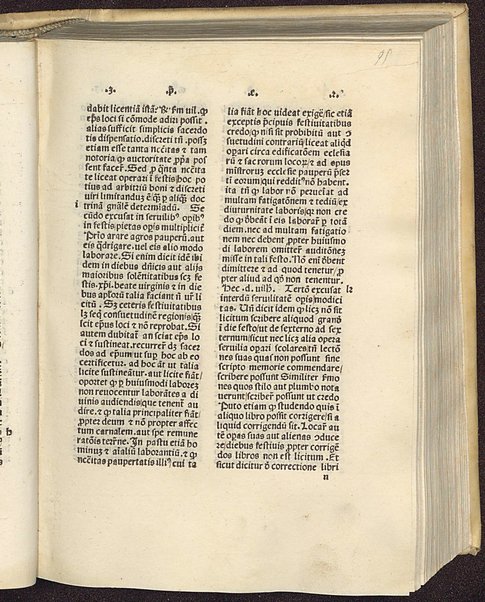 .3. .p̄. .c̄. .2.
dabit licentiā istā: & s̄m uil. ꝙ
ep̄s loci si cōmode adiri possit.
alias sufficit simplicis sacerdo
tis dispensatio. discreti tn̄. possz
etiam esse tanta nc̄citas & tam
notoria ꝙ auctoritate ꝓp̄a pos
sent facer. Sed ꝓ q̄nta nc̄cita
te liceat operari ī festis hoc po
tius ad arbitriū boni & discreti
uiri limitandū ē q̄ ꝓ aliq̄ doc
trinā gn̄ale determiādū. Se
cūdo excusat in seruilibꝰ opibꝰ
in festis pietas opis multiplicit̄
Prīo arare agros pauperū. aut
eis q̄drigare. uel eis alio modo
laborare. Si enim dicit idē ibi
dem in diebus dn̄icis aut alijs
maioribus solēnitatibus scz fe
stis. xp̄i. beate uirginis & in die
bus aplorū talia faciant n̄ ur̄ li
citū. Sz ceteris festiuitatibus
lz seq̄ consuetudinē regionis q̄
scit ep̄us loci & nō reprobat. Si
autem dubitat̄ an sciat ep̄s lo
ci & sustineat. recurrer̄ dz sacer
dos ad ep̄um ut suꝑ hoc ab eo
certificetur. ad hoc aūt ut talia
licite sustineātur. aut licite fiāt
oportet ꝙ ꝓ huiusmodi laborez
non reuocentur laborātes a di
uinis audiendis que tenent̄ au
dire. 2 ꝙ talia principaliter fiāt
ꝓpter deum & nō propter affec
tum carnalem. aut spe remune
ratōis terr̄ne. In pastu etiā ho
minuz & aīaliū laborantiū. & ꝙ
nc̄citas paupertatis illiꝰ cui ta
lia fiāt hoc uideat exiger̄. sic etiā
exceptis p̄cipuis festiuitatibus
credo. ꝙ nisi sit prohibitū aut ɔ
suetudini contrariū liceat aliqd̄
opari circa edificatōem ecclesia
rū & sacrorum locorꝝ & ad opus
mīstrorum ecclesie pauperū p̄ser
tī eorum qui redditꝰ nō habent.
ita tn̄ ꝙ labor nō perueīat ad
multam fatigatōnem & tediū ex
diuturnitate laboris. qr̄ non cre
do ꝙ debent̄ eis laborar̄ ꝑ totā
diem. nec ad multam fatigatio
nem nec debent ꝓpter huiusmo
di laborem omitter̄ auditōnez
misse in tali festo. Nō enī debent
dimittere & ad quod tenetur ꝓ
pter aliud ad qd̄ non tenentur.
Hec .d. uilh. Tertō excusat lz
interdū seruilitatē opis modici
tas. Un̄ dicit idem ꝙ licz nō sit
licitum scribere aliquod grand̄
ī die festo. ut de sexterno ad sex
ternum. sicut nec licz alia opera
seruilia opari scolares tn̄ lectō
nes suas quas non possunt sine
scripto memorie commendare
scribere possunt Similiter s̄mo
nes quos stilo aut plumbo nota
uerunt scribere possunt ut credo
Puto etiam ꝙ studendo quis ī
aliquo libro possit corriger̄e si a
liquid corrigendū sit. Locar̄ au
tē opas suas aut alienas ɔduce
re diebus festiuis ꝓpter corrigē
dos libros non est licitum. Et
sicut dicitur ō correctione libri
n